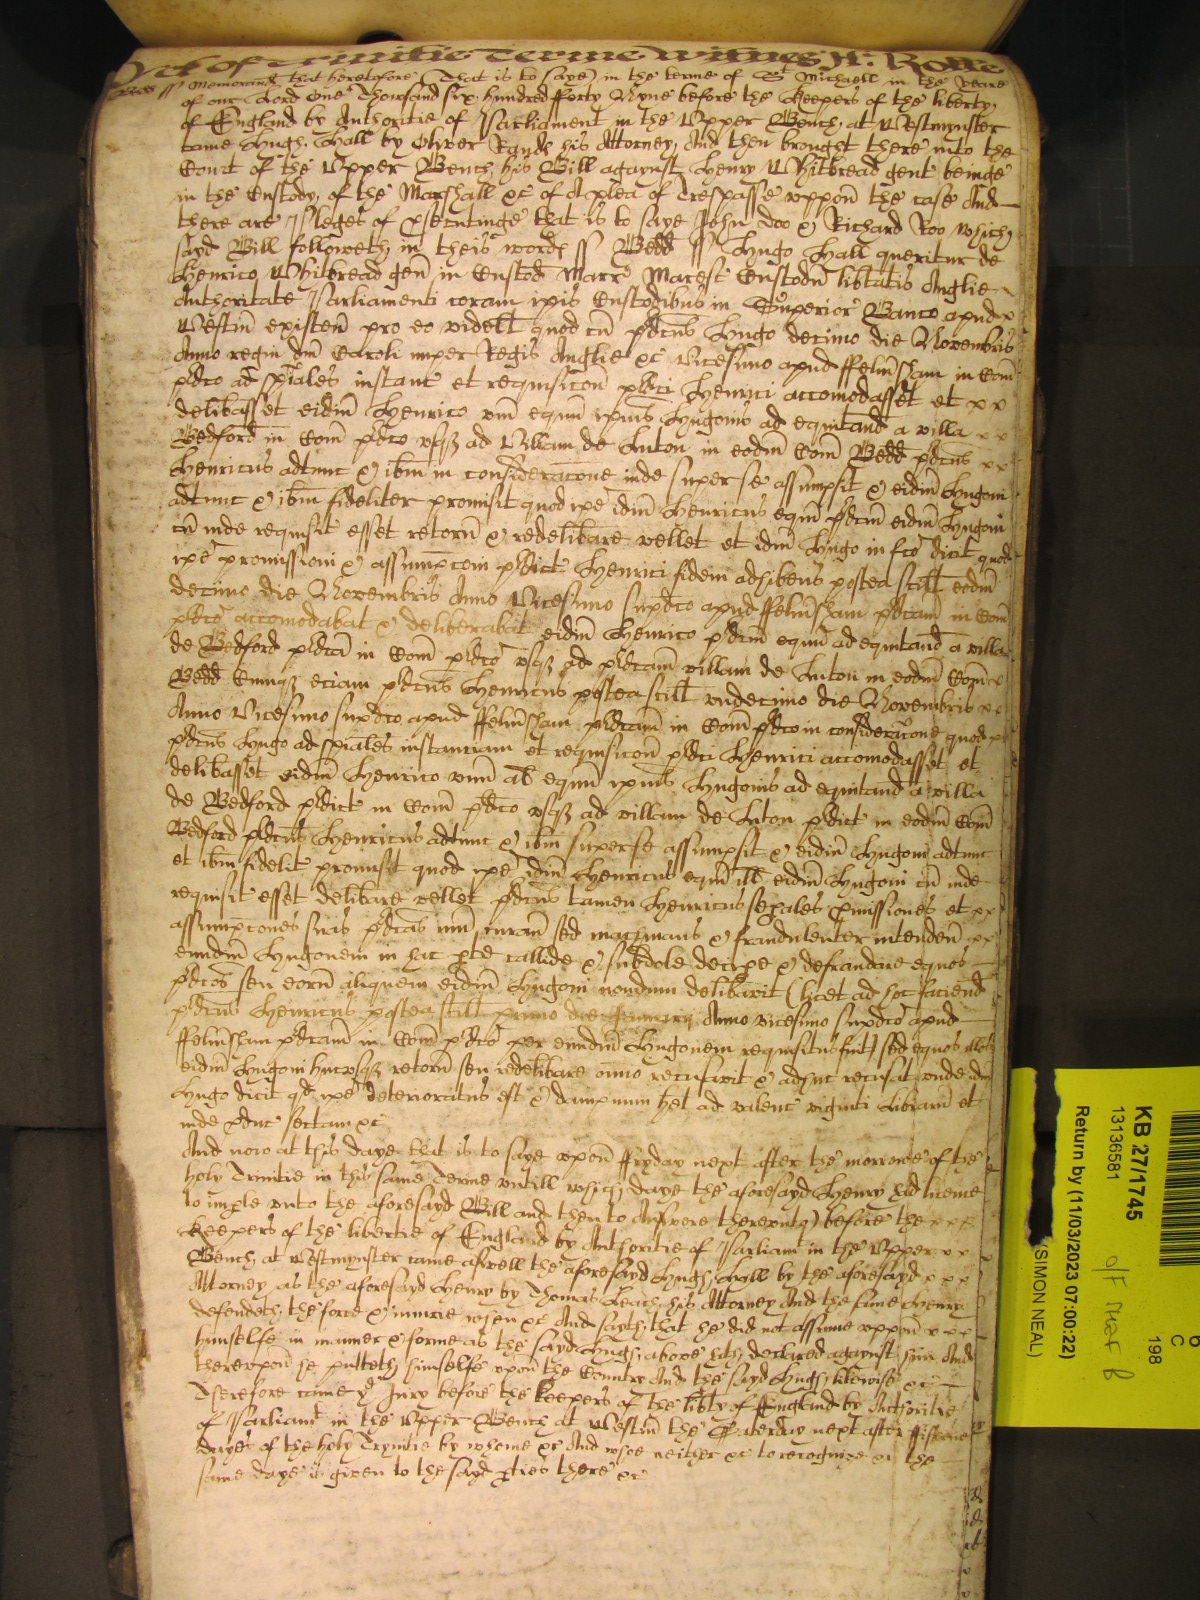 Yet of Trinitie Terme Witnes H. Rolle
Bedd ss Memorand that heretofore (That is to saye) in the terme of St Michaell in the Yeare
of our Lord One Thousand six hundred fforty Nyne before the Keepers of the liberty
of England by Authoritie of Parliament in the Upper Bench at Westmynster
came Hugh Hall by Oliver Rands his Attorney And then brought there into the
Court of the Upper Bench his Bill agaynst Henry Whitbread gent beinge
in the Custody of the Marshall &c of A plea of Trespasse uppon the case And
there are Pleges of psecutinge that is to saye John Doo & Richard Roo Which
sayd Bill followeth in theis words ss Bedd ss Hugo Hall queritur de
Henrico Whitbread gen in Custod Marr Maresc Custodu libtatis Anglie
Authoritate Parliamenti coram ipis Custodibus in Superior Banco apud
Westm existen pro eo videlt quod cu pdcus Hugo decimo die Novembris
Anno regni dni Caroli nuper Regis Anglie &c Vicesimo apud ffelmsham in Com
pdco ad spiales instanc et requisicon pdci Henrici accomodasset et x x
delibasset eidm Henrico unu equu ipius Hugonis ad equitand a villa x x
Bedford in Com pdco usq ad Villam de Luton in eodm Com Bedd pdcus x x
Henricus adtunc & ibm in consideracone inde super se assumpsit & eidm Hugoni
adtunc & ibm fideliter promisit quod ipe idm Henricus equu pdcum eidm Hugoni
cu inde requisit esset retorn & redelibare vellet et idm Hugo in fco dicit quod
ipe promissioni & assumpconi pdict Henrici fidem adhibens postea scilt eodm
decimo die Novembris Anno Vicesimo supdco apud ffelmsham pdcam in Com
pdco accomodabat & deliberabat eidm Henrico pdcum equu ad equitand a villa
de Bedford pdca in Com pdco usq ad pdcam villam de Luton in eodm Com
Bedd Cumq eciam pdcus Henricus postea scilt undecimo die Novembris x x
Anno Vicesimo supdco apud ffelmsham pdcam in Com pdco in consideracone quod
pdcus Hugo ad spiales instanciam et requisicon pdci Henrici accomodasset et
delibasset eidm Henrico unu al equu ipius Hugonis ad equitand a villa
de Bedford pdict in Com pdco usq ad villam de Luton pdict in eodm Com
Bedford pdcus Henricus adtunc & ibm super se assumpsit & eidm Hugoni adtunc
et ibm fidelit promisit quod ipe idm Henricus equu ill eidm Hugoni cu inde
requisit esset delibare vellet pdcus tamen Henricus sepales pmissiones et x x
assumpcones suas pdcas minime curans sed machinans & fraudulenter intenden x x
eundm Hugonem in hac pte callide & subdole decipe & defraudare equos
pdcos seu eorum aliquem eidm Hugoni nondum delibavit (licet ad hoc faciend
pdcus Henricus postea scilt primo die January Anno vicesimo supdco apud
ffelmsham pdcam in Com pdco per eundm Hugonem requisitus fuit) sed equos illos
eidm Hugoni hucusq retorn seu redelibare omino recusavit & adhuc recusat unde idm
Hugo dicit qd ipe deterioratus est & dampnum het ad valenc viginti Librarum et
inde pduc sectam &c
And now at this daye that is to saye uppon ffryday next after the morrowe of the
holy Trinitie in this same Terme untill which daye the aforesayd Henry had licence
to imple unto the aforesayd Bill and then to Answere thereunto) before the x x x
Keepers of the libertie of England by Authoritie of Parliamt in the Upper x x
Bench at Westmynster came aswell the aforesayd Hugh Hall by the aforesayd x x x
Attorney as the aforesayd Henry by Thomas Leach his Attorney And the same Henry
defendeth the force & iniurie when &c And sayth that he did not assume uppon x x x
himselfe in manner & forme as the sayd Hugh above hath declared agaynst him And
thereuppon he putteth himselfe upon the Country And the sayd Hugh likewise &c
Therefore came ye Jury before the Keepers of the libty of England by Authoritie
of Parliamt in the Upper Bench at Westm the Saterday next after fifteene
dayes of the holy Trynitie by whome &c And whoe neither &c to recognize &c the
same daye is given to the sayd pties there &c
KB 27/1745
13136581
Return by (11/03/2023 07:00:22)
(SIMON NEAL)
198
C
6